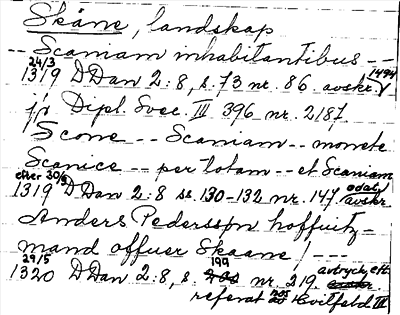 Skåne, landskap
-- Scaniam inhabitantibus --
24/3 1494
1319 DDan 2:8, s. 73 nr. 86. avskr.
jfr Dipl. Svec. III 396 nr. 2187
Scone -- Scaniam -- monete
Scanice -- per totam -- et Scaniam
efter 30/5 odat.
1319 DDan 2:8 ss. 130-132 nr. 147 avskr
Anders Pederssøn hoffuitz-
mand offuer Skaane / ---
29/5 199 avtryck eft.
1320 DDan 2:8, s. nr. 219.
referat Hvitfeld III